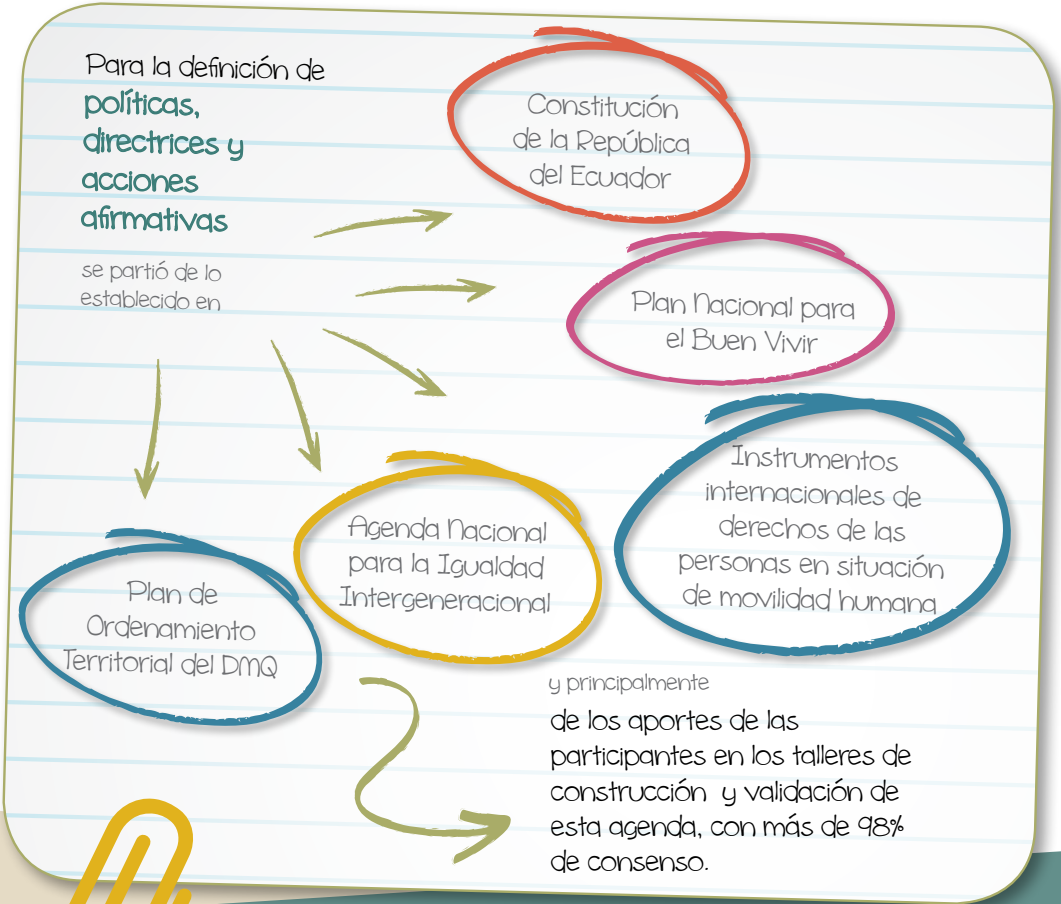 Para la definición de
políticas,
directrices y
acciones
afirmativas
se partió de lo
establecido en
Constitución
de la República
del Ecuador
Plan Nacional para
el Buen Vivir
Instrumentos
internacionales de
derechos de las
personas en situación
de movilidad humana
Agenda Nacional
para la Igualdad
Intergeneracional
Plan de
Ordenamiento
Territorial del DMQ
y principalmente
de los aportes de las
participantes en los talleres de
construcción y validación de
esta agenda, con más de 98%
de consenso.